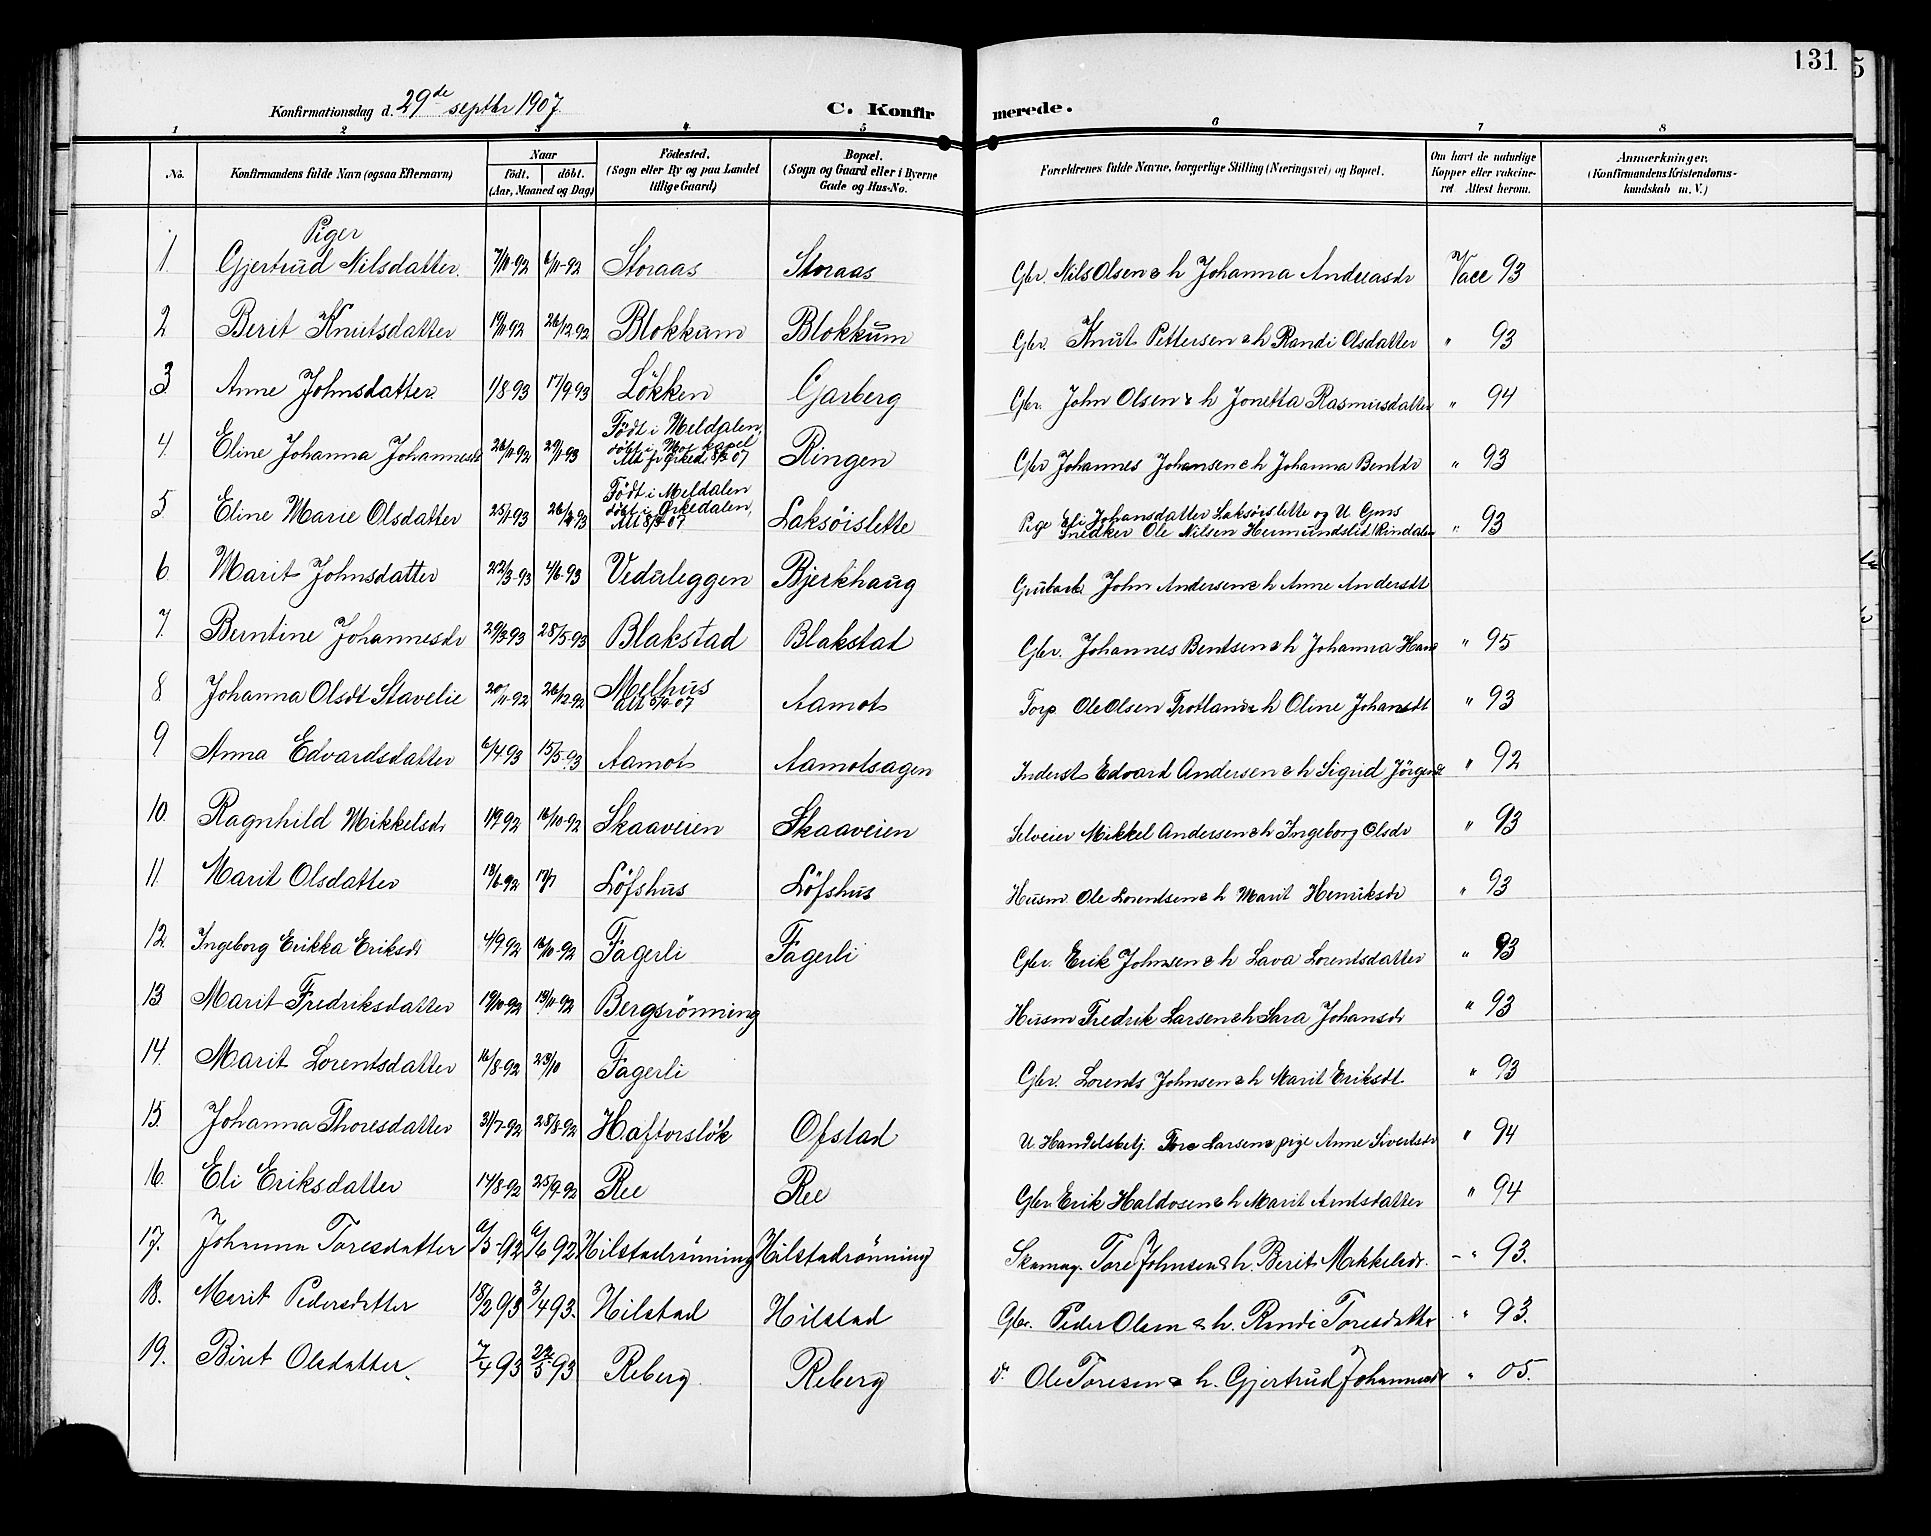 131
5
Konfirmationsdag d. 29de septbr 1907.
C. Konfirmerede.
1 2 3 4 5 6 7 8
No. Konfirmandens fulde Navn (ogsaa Efternavn) Naar født. døbt. (Aar, Maaned og Dag) Fødested. (Sogn eller By og paa Landet tillige Gaard) Bopæl. (Sogn og Gaard eller i Byerne Gade og Hus-No. Forældrenes fulde Navne, borgerlige Stilling (Næringsvei) og Bopæl. Om havt de naturlige Kopper eller vakcineret Attest herom. Anmærkninger. (Konfirmandens Kristendomskundskab m. V.)
Piger
1. Gjertrud Nilsdatter. 7/10-92 6/11-92 Storaas Storaas Gbr. Nils Olsen & h Johanna Andersdr Vacc 93
2 Berit Knutsdatter 19/11 92 26/12 92 Blokkum Blokkum Gbr. Knut Pettersen & h Randi Olsdatter " 93
3. Anne Johnsdatter 1/8 93 17/9 93 Løkken Garberg Gbr. John Olsen & h Jonetta Rasmusdatter " 94
4. Eline Johanna Johannesdt 26/11-92 29/1-93 Født i Meldalen, døbt i Moe kapel Att fr Orked. 8/3 07 Ringen Gbr Johannes Johansen & h Johanna Bentdr " 93
5 Eline Marie Olsdatter 25/1-93 26/2 93 Født i Meldalen døbt i Orkedalen, Att 8/3 07 Laksøislette Pige Eli Johansdatter Laksøislette og U. Gms Snedker Ole Nilsen Hermundslid Rindalen " 93
6. Marit Johnsdatter 22/3-93 4/6-93 Veduleggen Bjerkhaug Grubarb. John Andersen & h Anne Andersdt
7. Berntine Johannesdr 29/3 93 28/5-93 Blakstad Blakstad Gbr. Johannes Bentsen & h Johanna Hans " 95
8 Johanna Olsdt Stavelie 20/11-92 26/12-92 Melhus Att 5/4-07 Aamot Torp Ole Olsen Trotland & h Oline Johansdt " 93
9 Anna Edvardsdatter 6/4 93 15/5-93 Aamot Aamotsagen Inderst Edvard Andersen & h Sigrid Jörgensd " 92
10. Ragnhild Mikkelsdr 1/9 92 16/10-92 Skaaveien Skaaveien Selveier Mikkel Andersen & h Ingeborg Olsdr " 93
11. Marit Olsdatter 18/6-92 17/7 Löfshus Löfshus Husm. Ole Lorentsen & h Marit Henriksdr " 93
12. Ingeborg Erikka Eriksdr 4/9 92 16/10-92 Fagerli Fagerli Gbr. Erik Johnsen & h Lava Lorentsdatter " 93
13 Marit Fredriksdatter 19/10-92 13/11-92 Bergsrönning Husm Fredrik Larsen & h Sara Johansdr " 93
14. Marit Lorentsdatter 16/8-92 23/10 Fagerli Gbr. Lorents Johnsen & h Marit Eriksdt " 93
15. Johanna Thoresdatter 31/7-92 28/8-92 Haftorsløk Ofstad U Handelsbetj. Tore Larsen & pige Anne Sivertsdr " 94
16. Eli Eriksdatter 14/8-92 25/9-92 Ree Ree Gbr. Erik Haldosen & h Marit Arntsdatter " 94
17. Johanna Toresdatter 6/5-92 6/6 92. Hilstadrönning Hilstadrönning Skomag. Tore Johnsen & h. Berit Mikkelsdr. - " 93.
18. Marit Pedersdatter 18/2 93 3/4 93. Hilstad Hilstad Gbr. Peder Olsen & h. Randi Toresdatter " 93.
19. Birit Olsdatter. 7/4 93 22/5 93 Reberg Reberg do Ole Toresen & h. Gjertrud Johannesdr " 05.